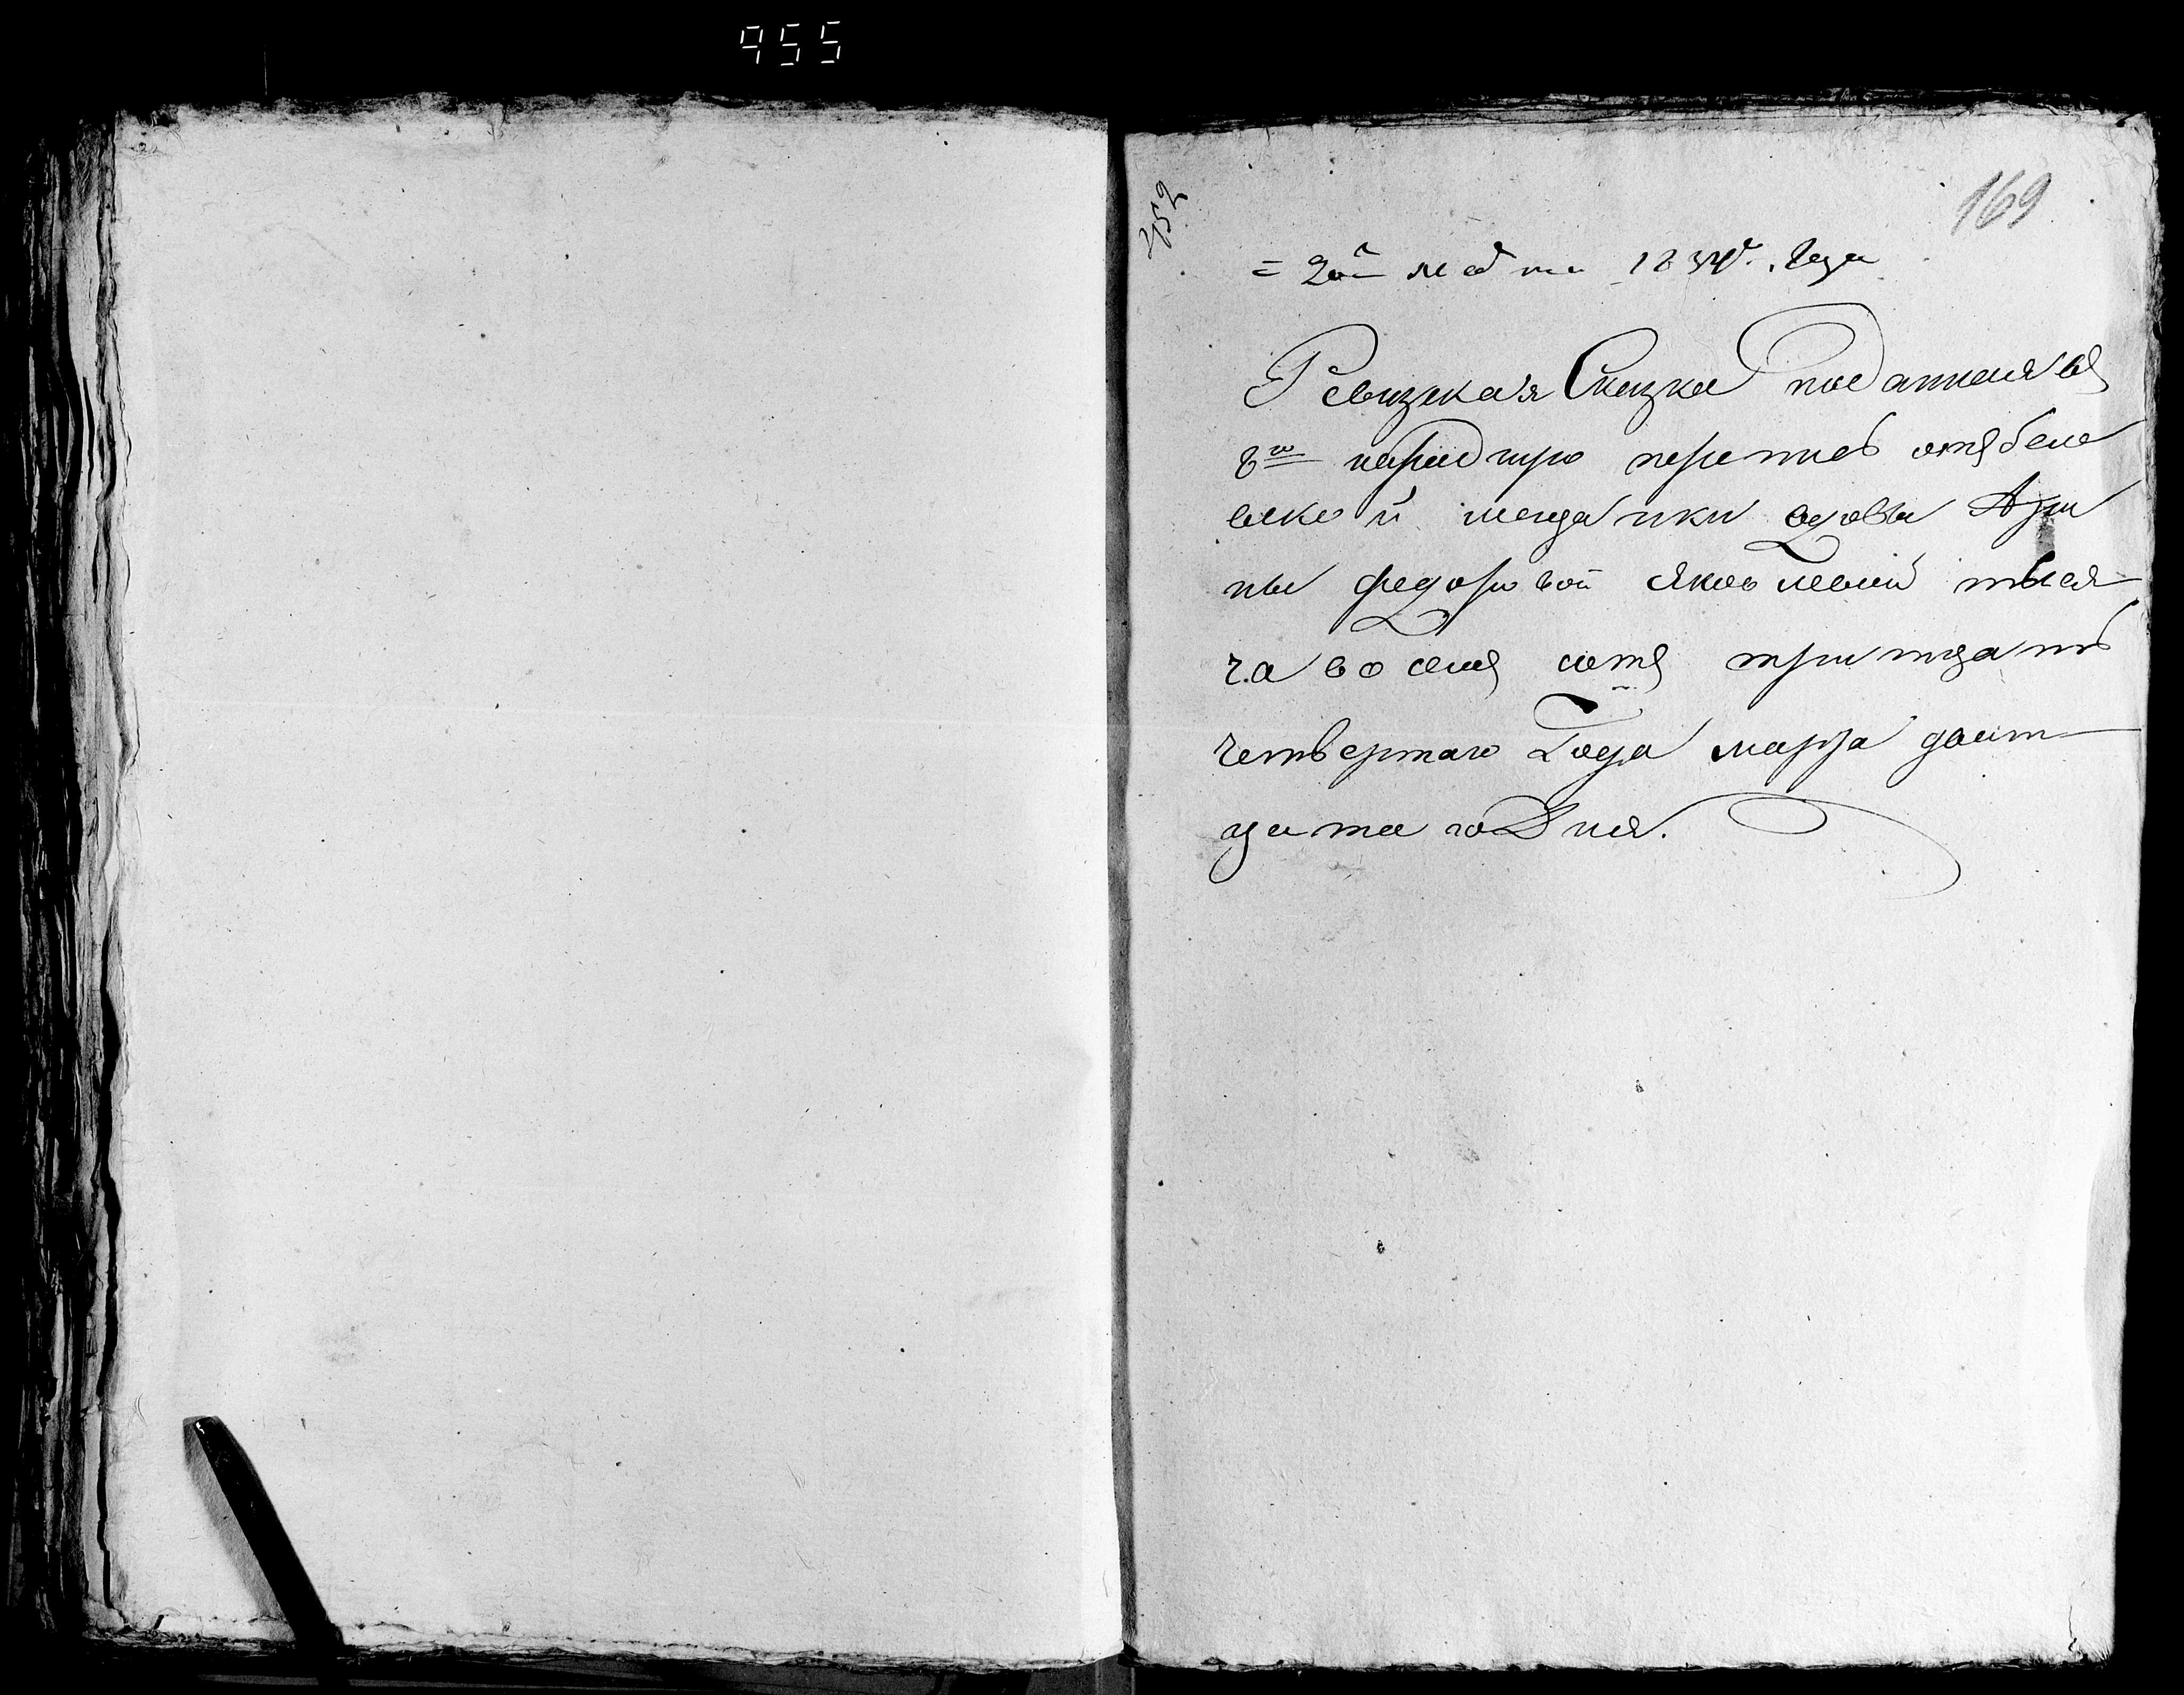 955
169
452
= 20й 1834го. Года
Ревизская Сказка поданная въ
8ю народную перепись отъ беле
вской мещанки вдовы Ари
ны федоровой Яковлевой тыся
ча восемъ сотъ тритцать
четвертаго Года марта дват
цатаго Дня.